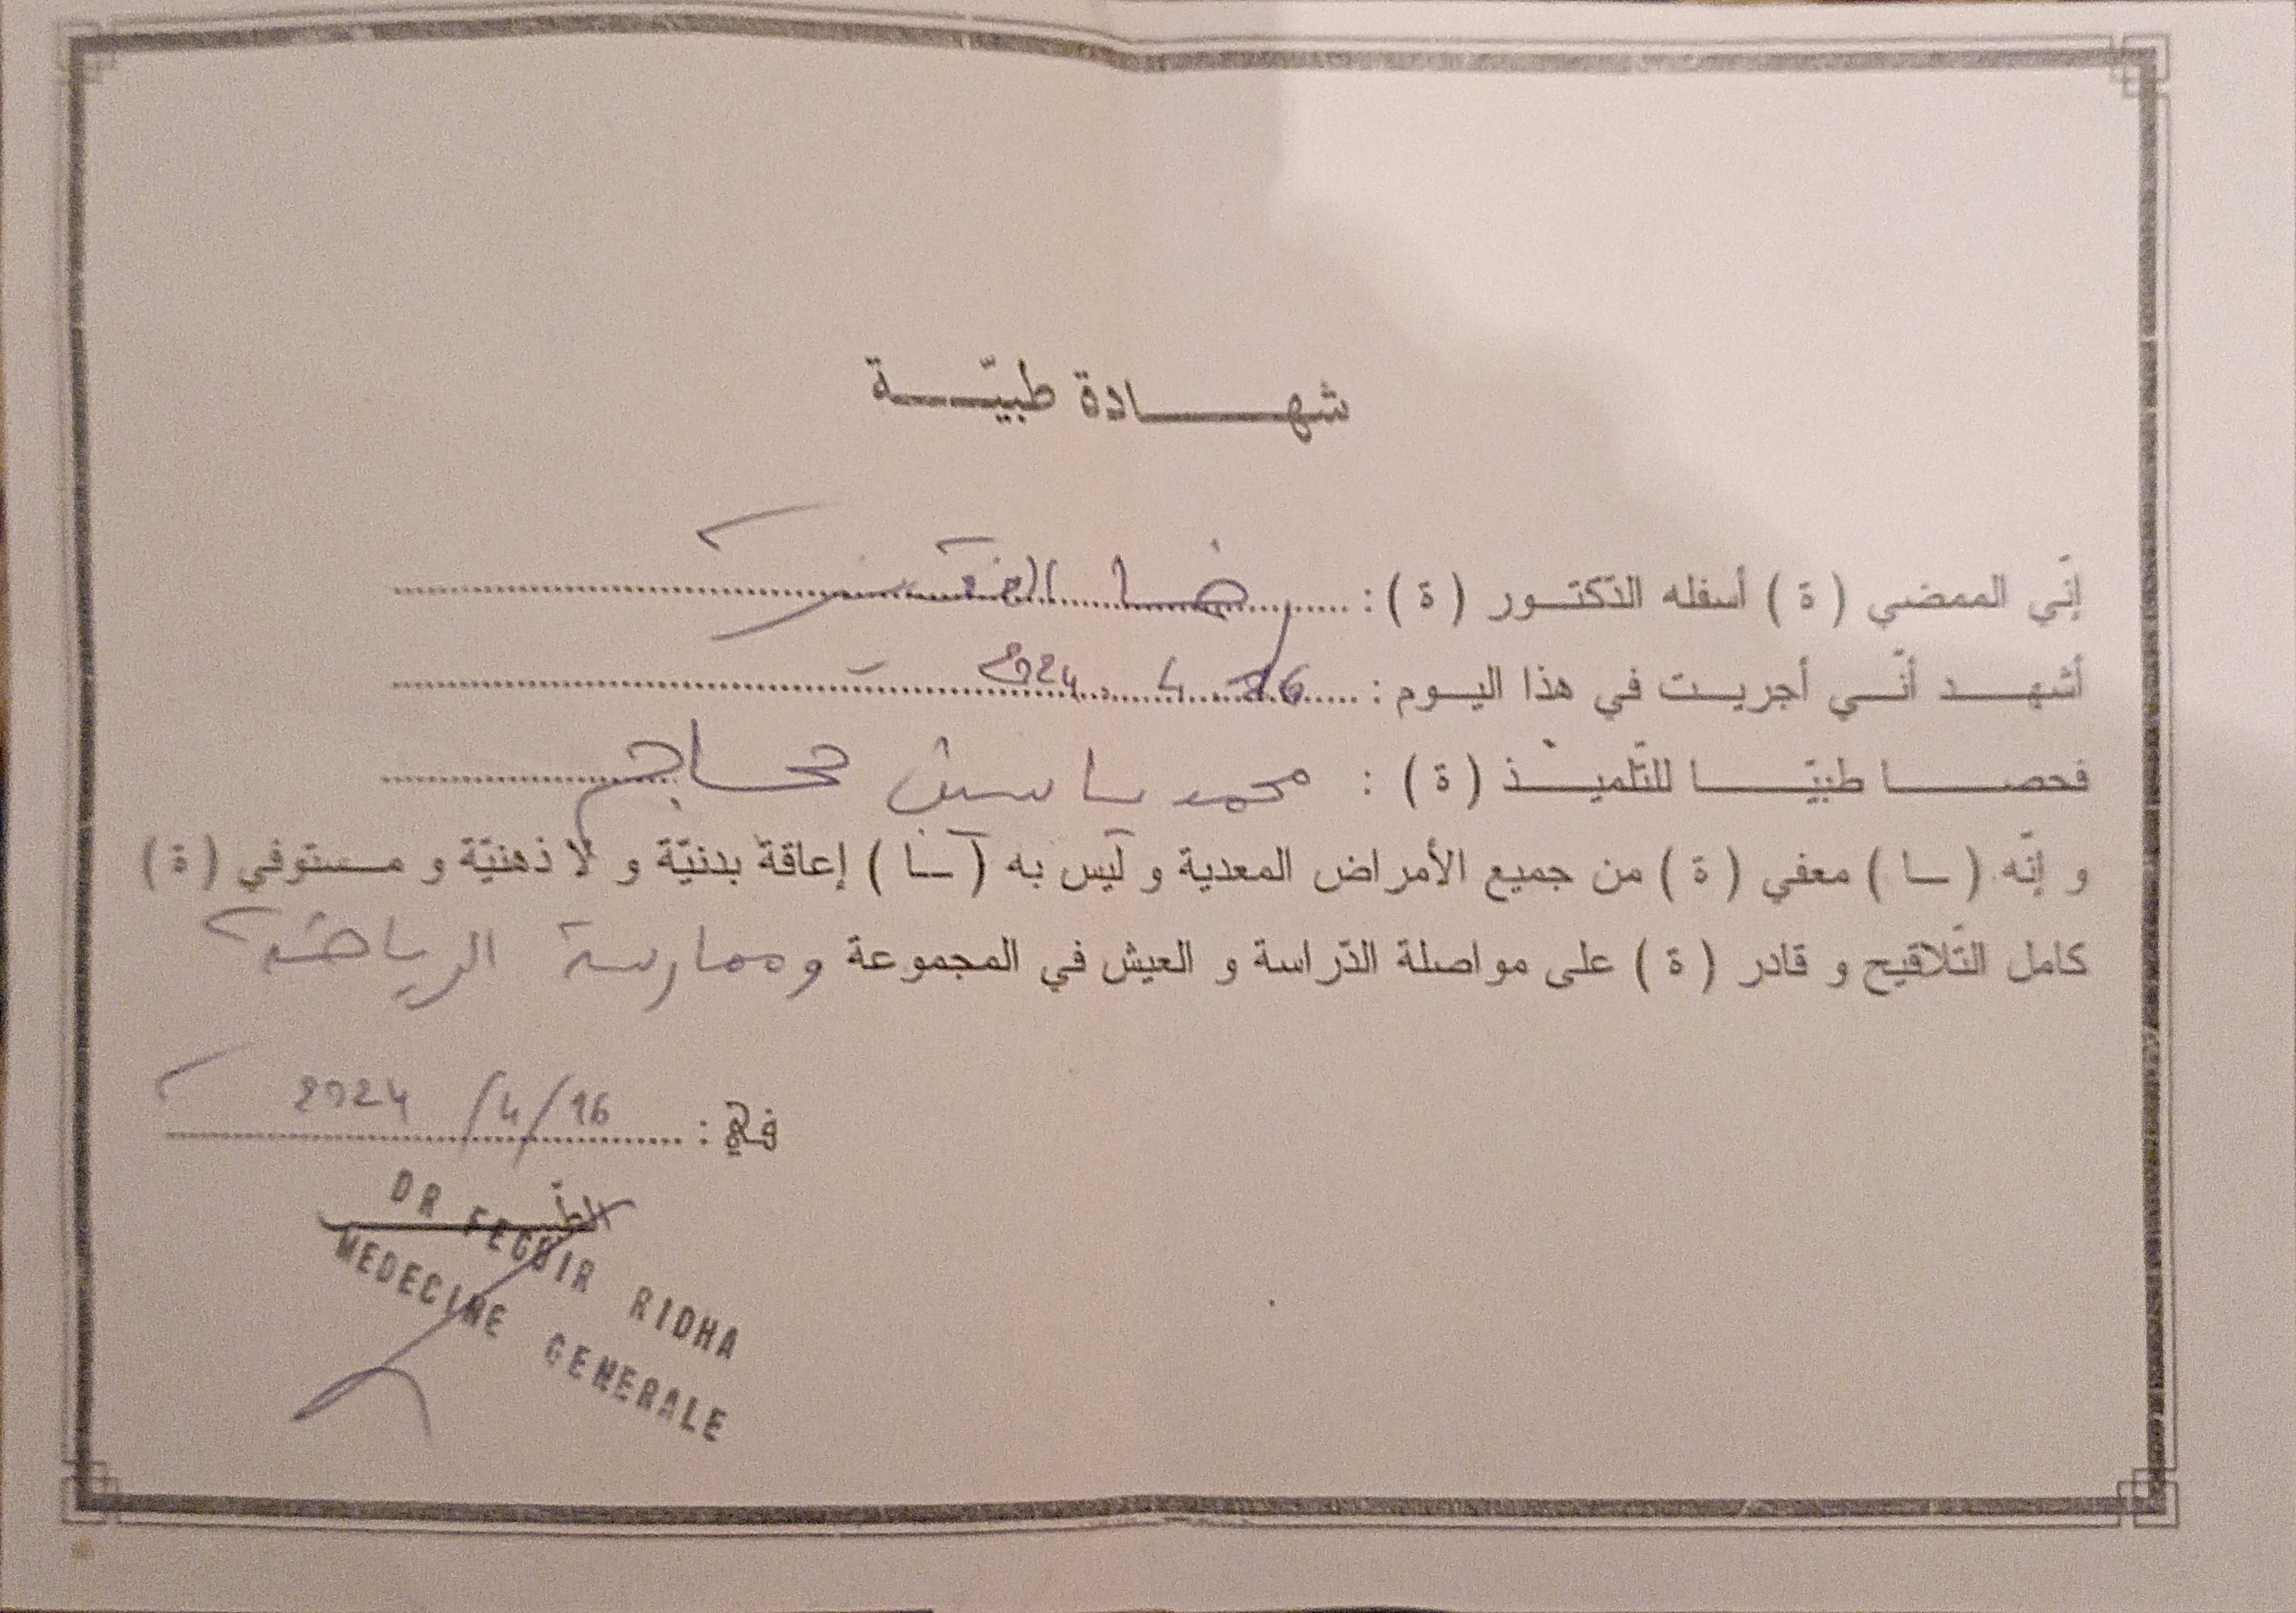 شهادة طبيّة
إنّي الممضي (ة) أسفله الدّكتور (ة) : رضا الفقير
أشهد أنّي أجريت في هذا اليوم : 16 . 4 . 2024
فحصا طبيّا للتّلميذ (ة) : محمد ياسين حجاج
و إنّه (ـا) معفي (ة) من جميع الأمراض المعدية و ليس به (ـا) إعاقة بدنيّة و لا ذهنيّة و مستوفي (ة)
كامل التّلاقيح و قادر (ة) على مواصلة الدّراسة و العيش في المجموعة وممارسة الرياضة
في : 16/4/ 2024
DR FEGUIR RIDHA
MEDECINE GENERALE